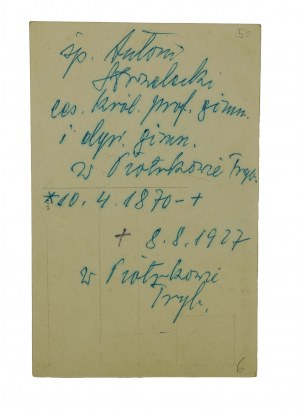 śp. Antoni
Strzelecki
ces. król. prof. gimn.
i dyr. gimn.
w Piotrkowie Tryb.
*10. 4. 1870 - +
+ 8. 8. 1927
w Piotrkowie
Tryb.